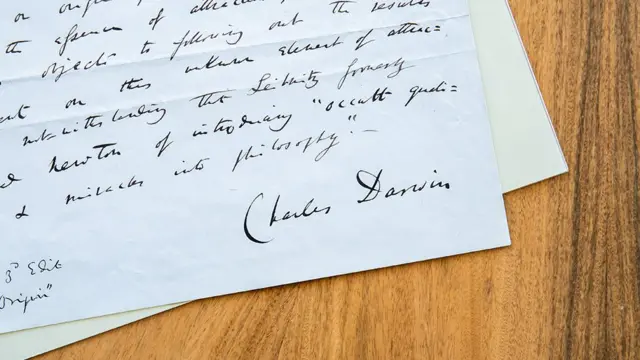 or origin
the essence of attraction
objects to following out the results
on this unknown element of attrac=
notwithstanding that Leibnitz formerly
Newton of introducing "occult quali=
& miracles into philosophy".—
Charles Darwin
3d Edit
Origin"